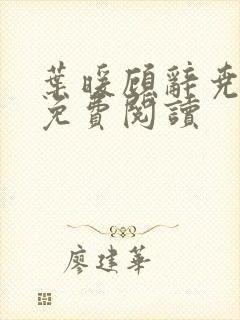 葉暖顧辭堯
免費閱讀
廖建華